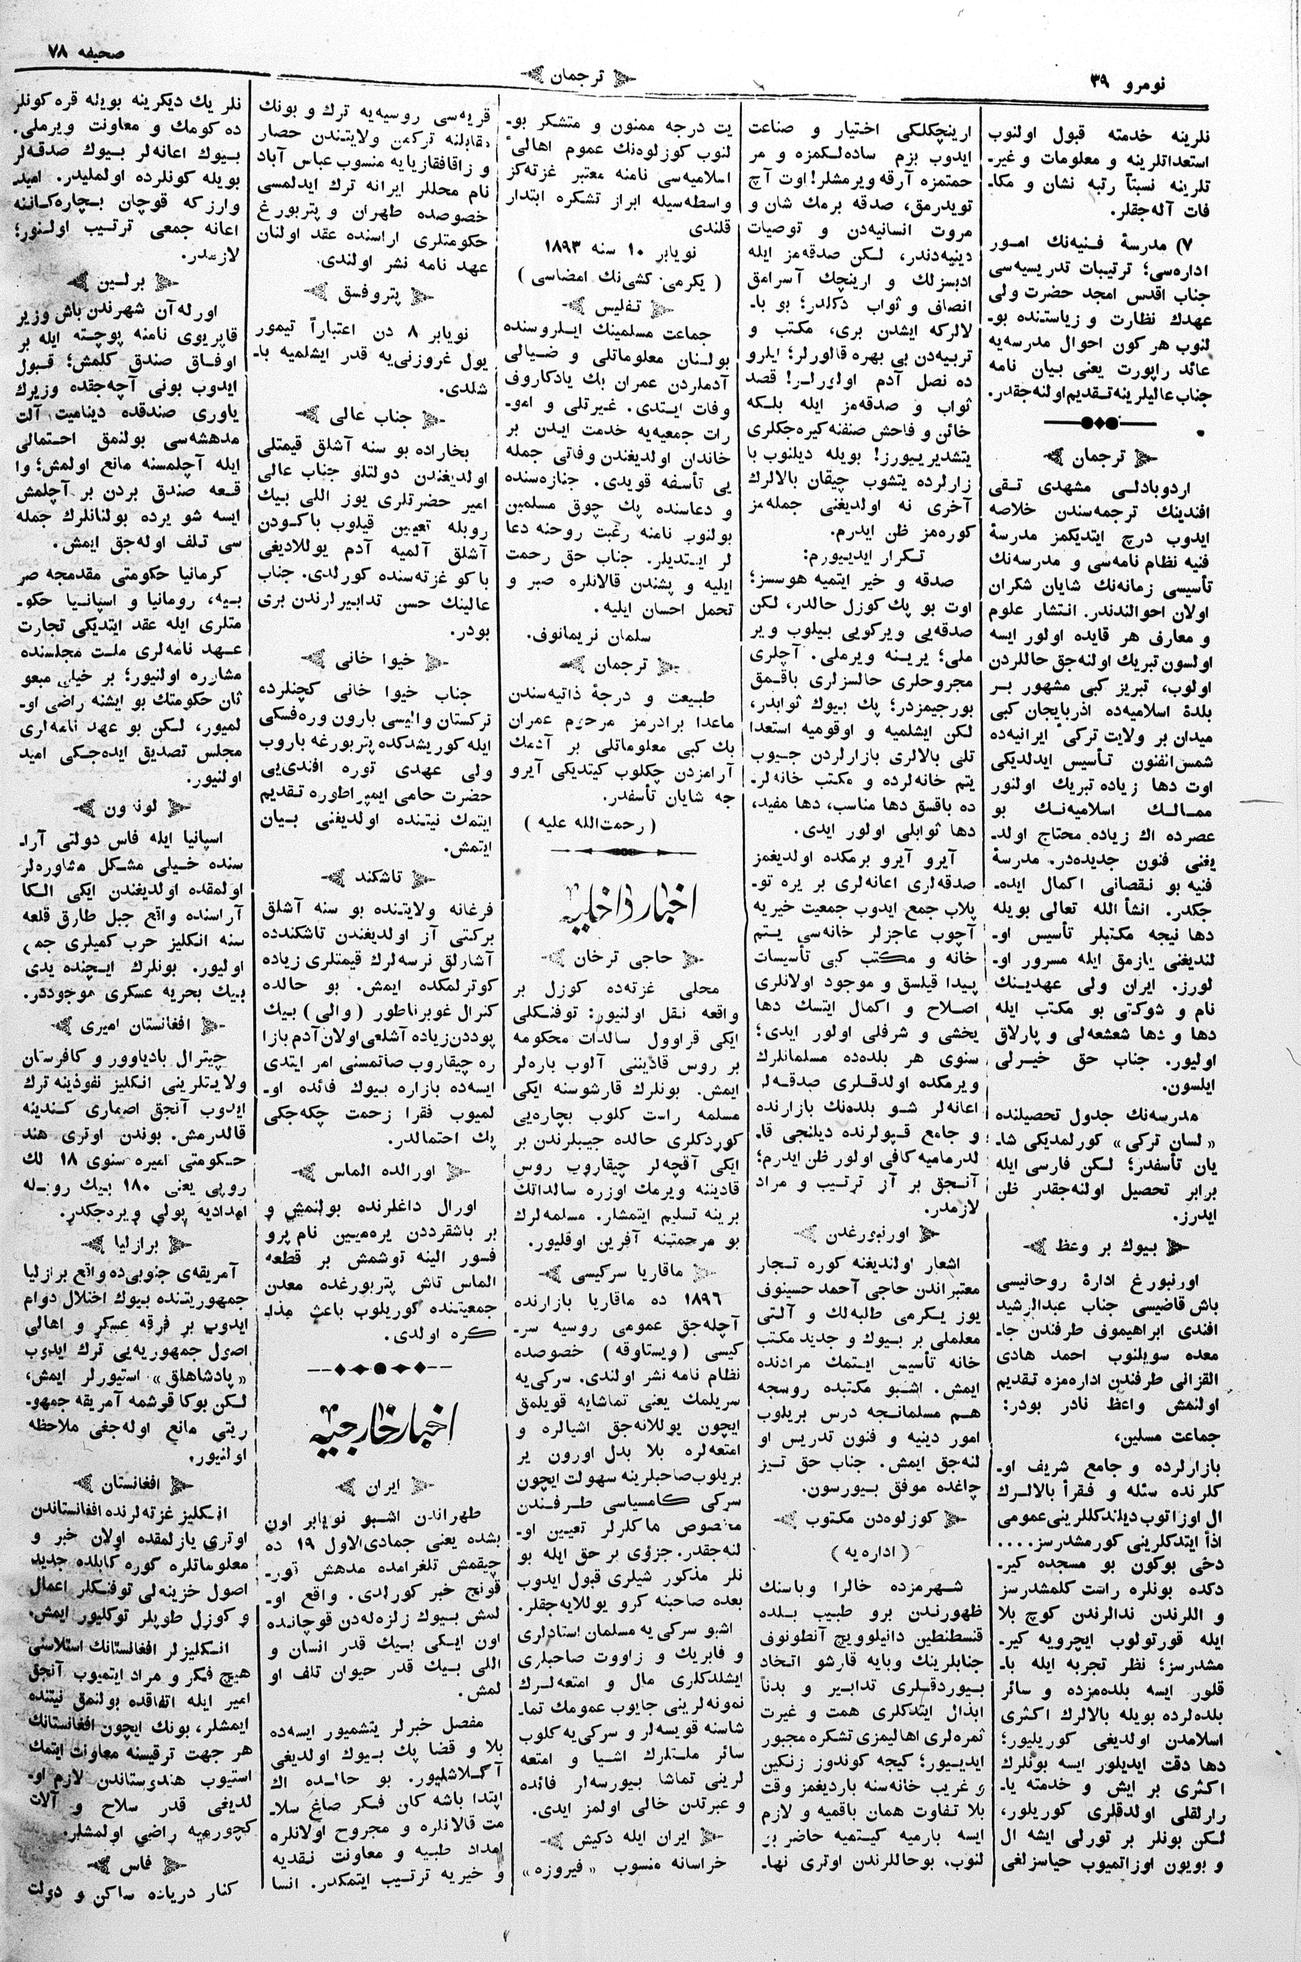 نومرو ٣٩
ترجمان
صحیفه ٧٨
نلرینه خدمته قبول اولنوب
استعداتلرینه و معلومات و غیر‌ـ
تلرینه نسبتاً رتبه نشان و مکا‌ـ
فات آله‌جقلر.
٧) مدرسهٔ فنیه‌نك امور
اداره‌سی؛ ترتیبات تدریسیه‌سی
جناب اقدس امجد حضرت ولی
عهدك نظارت و زیاستنده بو‌ـ
لنوب هر کون احوال مدرسه‌یه
عائد راپورت یعنی بیان نامه
جناب عالیلرینه تقدیم اولنه‌جقدر.
ترجمان
اردوبادلی مشهدی تقی
افندینك ترجمه‌سندن خلاصه
ایدوب درج ایتدیکمز مدرسهٔ
فنیه نظام نامه‌سی و مدرسه‌نك
تأسیسی زمانه‌نك شایان شکران
اولان احوالندندر. انتشار علوم
و معارف هر قایده اولور ایسه
اولسون تبریك اولنه‌جق حاللردن
اولوب، تبریز کبی مشهور بر
بلدهٔ اسلامیه‌ده اذربایجان کبی
میدان بر ولایت ترکیٔ ایرانیه‌ده
شمس‌انفنون تأسیس ایدلدیکی
اوت دها زیاده تبریك اولنور
ممالك اسلامیه‌نك بو
عصرده اك زیاده محتاج اولد‌ـ
یغی فنون جدیده‌در. مدرسهٔ
فنیه بو نقصانی اکمال ایده‌ـ
جکدر. انشأ الله تعالی بویله
دها نیجه مکتبلر تأسیس او‌ـ
لندیغنی یازمق ایله مسرور او‌ـ
لورز. ایران ولی عهدینك
نام و شوکتی بو مکتب ایله
دها و دها شعشعه‌لی و پارلاق
اولیور. جناب حق خیرلی
ایلسون.
مدرسه‌نك جدول تحصیلنده
«لسان ترکی» کورلمدیکی شا‌ـ
یان تأسفدر؛ لکن فارسی ایله
برابر تحصیل اولنه‌جقدر ظن
ایدرز.
بیوك بر وعظ
اورنبورغ ادارهٔ روحانیسی
باش قاضیسی جناب عبدالرشید
افندی ابراهیموف طرفندن جا‌ـ
معده سویلنوب احمد هادی
القزانی طرفندن اداره‌مزه تقدیم
اولنمش واعظ نادر بودر:
جماعت مسلین،
بازارلرده و جامع شریف او‌ـ
کلرنده سئله و فقرأ بالالرك
ال اوزاتوب دیلندکلرینی عمومی
اذأ ایتدکلرینی کورمشدرسز....
دخی بوکون بو مسجده کیر‌ـ
دکده بونلره راست کلمشدرسز
و اللرندن ندالرندن کوچ بلا
ایله قورتولوب ایچرویه کیر‌ـ
مشدرسز؛ نظر تجربه ایله با‌ـ
قلور ایسه بلده‌مزده و سائر
بلده‌لرده بویله بالالرك اکثری
اسلامدن اولدیغی کوریلیور؛
دها دقت ایدیلور ایسه بونلرك
اکثری بر ایش و خدمته یا‌ـ
رارلقلی اولدقلری کوریلور،
لکن بونلر بر تورلی ایشه ال
و بویون اوزاتمیوب حیاسزلغی
ارینچکلکی اختیار و صناعت
ایدوب بزم ساده‌لکمزه و مر
حمتمزه آرقه ویرمشلر! اوت آچ
تویدرمق، صدقه برمك شان و
مروت انسانیه‌دن و توصیات
دینیه‌دندر، لکن صدقه‌مز ایله
ادبسزلك و ارینچك آسرامق
انصاف و ثواب دکلدر؛ بو با‌ـ
لالرکه ایشدن بری، مکتب و
تربیه‌دن بی بهره قالورلر؛ ایلرو
ده نصل آدم اولورلر! قصد
ثواب و صدقه‌مز ایله بلکه
خائن و فاحش صنفنه کیره‌جکلری
یتشدیریورز! بویله دیلنوب با
زارلرده یتشوب چیقان بالالرك
آخری نه اولدیغنی جمله‌مز
کوره‌مز ظن ایدرم.
تکرار ایدییورم:
صدقه و خیر ایتمیه هوسسز؛
اوت بو پك کوزل حالدر، لکن
صدقه‌یی ویرکویی بیلوب ویر
ملی؛ یرینه ویرملی. آچلری
مجروحلری حالسزلری باقمق
بورجیمزدر؛ پك بیوك ثوابدر،
لکن ایشلمیه و اوقومیه استعدا
تلی بالالری بازارلردن جیوب
یتم خانه‌لرده و مکتب خانه‌لر‌ـ
ده باقسق دها مناسب، دها مفید،
دها ثوابلی اولور ایدی.
آیرو آیرو برمکده اولدیغمز
صدقه‌لری اعانه‌لری بر یره تو‌ـ
پلاب جمع ایدوب جمعیت خیریه
آچوب عاجزلر خانه‌سی یتم
خانه و مکتب کبی تأسیسات
پیدا قیلسق و موجود اولانلری
اصلاح و اکمال ایتسك دها
یخشی و شرفلی اولور ایدی؛
سنوی هر بلده‌ده مسلمانلرك
ویرمکده اولدقلری صدقه‌لر
اعانه‌لر شو بلده‌نك بازارنده
و جامع قپولرنده دیلنجی قا‌ـ
لدرمامیه کافی اولور ظن ایدرم؛
آنجق بر آز ترتیب و مراد
لازمدر.
اورنبورغدن
اشعار اولندیغنه کوره تجار
معتبراندن حاجی آحمد حسینوف
یوز یکرمی طلبه‌لك و آلتی
معلملی بر بیوك و جدید مکتب
خانه تأسیس ایتمك مرادنده
ایمش. اشبو مکتبده روسجه
هم مسلمانجه درس بریلوب
امور دینیه و فنون تدریس او
لنه‌جق ایمش. جناب حق تیز
چاغده موفق بیورسون.
کوزلوه‌دن مکتوب
(اداره‌یه)
شهرمزده خالرا وباسنك
ظهورندن برو طبیب بلده
قنسطنطین دانیلوویچ آنطونوف
جنابلرینك وبایه قارشو اتخاد
بیوردقلری تدابیر و بدناً
ابذال ایتدکلری همت و غیرت
ثمره‌لری اهالیمزی تشکره مجبور
ایدییور؛ کیجه کوندوز زنکین
و غریب خانه‌سنه باردیغمز وقت
بلا تفاوت همان باقمیه و لازم
ایسه بارمیه کیتمیه حاضر بر
لنوب، بوحاللرندن اوتری نها‌ـ
یت درجه ممنون و متشکر بو‌ـ
لنوب کوزلوه‌نك عموم اهالیٔ
اسلامیه‌سی نامنه معتبر غزته‌کز
واسطه‌سیله ابراز تشکره ابتدار
قلندی
نویابر ١٠ سنه ١٨٩٣
(یکرمی کشی‌نك امضاسی)
تفلیس
جماعت مسلمینك ایلروسنده
بولنان معلوماتلی و ضیالی
آدملردن عمران بك یادکاروف
وفات ایتدی. غیرتلی و امو‌ـ
رات جمعیه‌یه خدمت ایدن بر
خاندان اولدیغندن وفاتی جمله
یی تأسفه قویدی. جنازه‌سنده
و دعاسنده پك چوق مسلمین
بولنوب نامنه رغبت روحنه دعا
لر ایتدیلر. جناب حق رحمت
ایلیه و پشندن قالانلره صبر و
تحمل احسان ایلیه.
سلمان نریمانوف.
ترجمان
طبیعت و درجهٔ ذاتیه‌سندن
ماعدا برادرمز مرحوم عمران
بك کبی معلوماتلی بر آدمك
آرامزدن چکلوب کیتدیکی آیرو
جه شایان تأسفدر.
(رحمت‌الله علیه)
اخبار داخلیه
حاجی ترخان
محلی غزته‌ده کوزل بر
واقعه نقل اولنیور: توفنکلی
ایکی قراوول سالدات محکومه
بر روس قادیننی آلوب باره‌لر
ایمش. بونلرك قارشوسنه ایکی
مسلمه راست کلوب بچاره‌یی
کوردکلری حالده جیبلرندن بر
ایکی آقچه‌لر چیقاروب روس
قادیننه ویرمك اوزره سالداتك
برینه تسلیم ایتمشار. مسلمه‌لرك
بو مرحمتنه آفرین اوقلیور.
ماقاریا سرکیسی
١٨٩٦ ده ماقاریا بازارنده
آچله‌جق عمومی روسیه سر‌ـ
کیسی (ویستاوقه) خصوصده
نظام نامه نشر اولندی. سرکی‌یه
سریلمك یعنی تماشایه قویلمق
ایچون یوللانه‌جق اشیالره و
امتعه‌لره بلا بدل اورون یر
بریلوب صاحبلرینه سهولت ایچون
سرکی کامسیاسی طرفندن
مخصوص ماکلرلر تعیین او‌ـ
لنه‌جقدر. جزؤی بر حق ایله بو
نلر مذکور شیلری قبول ایدوب
بعده صاحبنه کرو یوللایه‌جقلر.
اشبو سرکی یه مسلمان استادلری
و فابریك و زاووت صاحبلری
ایشلدکلری مال و امتعه‌لرك
نمونه‌لرینی جایوب عمومك تما‌ـ
شاسنه قویسه‌لر و سرکی‌یه کلوب
سائر ملتلرك اشیا و امتعه
لرینی تماشا بیورسه‌لر فائده
و عبرتدن خالی اولمز ایدی.
ایران ایله دکیش
خراسانه منسوب «فیروزه»
قریه‌سی روسیه‌یه ترك و بونك
مقابلنه ترکمن ولایتندن حصار
و زاقافقازیایه منسوب عباس آباد
نام محللر ایرانه ترك ایدلمسی
خصوصده طهران و پتربورغ
حکومتلری اراسنده عقد اولنان
عهد نامه نشر اولندی.
پتروفسق
نویابر ٨ دن اعتباراً تیمور
یول غروزنی‌یه قدر ایشلمیه با‌ـ
شلدی.
جناب عالی
بخاراده بو سنه آشلق قیمتلی
اولدیغندن دولتلو جناب عالی
امیر حضرتلری یوز اللی بیك
روبله تعیین قیلوب باکودن
آشلق آلمیه آدم یوللادیغی
باکو غزته‌سنده کورلدی. جناب
عالینك حسن تدابیرلرندن بری
بودر.
خیوا خانی
جناب خیوا خانی کچنلرده
ترکستان والیسی بارون وره‌فسکی
ایله کوریشدکده پتربورغه باروب
ولی عهدی توره افندی‌یی
حضرت حامی ایمپراطوره تقدیم
ایتمك نیتنده اولدیغنی بیان
ایتمش.
تاشکند
فرغانه ولایتنده بو سنه آشلق
برکتی آز اولدیغندن تاشکندده
آشارلق نرسه‌لرك قیمتلری زیاده
کوترلمکده ایمش. بو حالده
کنرال غوبرناطور (والی) بیك
پوددن زیاده آشلغی اولان آدم بازا
ره چیقاروب صاتمسنی امر ایتدی
ایسه‌ده بازاره بیوك فائده او‌ـ
لمیوب فقرا زحمت چکه‌جکی
پك احتمالدر.
اورالده الماس
اورال داغلرنده بولنمش و
بر باشقرددن یره‌میین نام پرو
فسور الینه توشمش بر قطعه
الماس تاش پتربورغده معدن
جمعیتنده کوریلوب باعث مذا‌ـ
کره اولدی.
اخبار خارجیه
ایران
طهراندن اشبو نویابر اون
بشده یعنی جمادی‌الاول ١٩ ده
چیقمش تلغرامده مدهش تور‌ـ
قونج خبر کورلدی. واقع او‌ـ
لمش بیوك زلزله‌دن قوچانده
اون ایکی بیك قدر انسان و
اللی بیك قدر حیوان تلف او
لمش.
مفصل خبرلر یتشمیور ایسه‌ده
بلا و قضا پك بیوك اولدیغی
آکلاشلیور. بو حالده اك
ابتدا باشه کان فکر صاغ سلا‌ـ
مت قالانلره و مجروح اولانلره
امداد طبیه و معاونت نقدیه
و خیریه ترتیب ایتمکدر. انسا
نلر یك دیکرینه بویله قره کونلر
ده کومك و معاونت ویرملی.
بیوك اعانه‌لر بیوك صدقه‌لر
بویله کونلرده اولملیدر. امید
وارزکه قوچان بچاره‌کاننه
اعانه جمعی ترتیب اولنور؛
لازمدر.
برلین
اورله‌آن شهرندن باش وزیر
قاپریوی نامنه پوچته ایله بر
اوفاق صندق کلمش؛ قبول
ایدوب بونی آچه‌جقده وزیرك
یاوری صندقده دینامیت آلت
مدهشه‌سی بولنمق احتمالی
ایله آچلمسنه مانع اولمش؛ وا
قعه صندق بردن بر آچلمش
ایسه شو یرده بولنانلرك جمله
سی تلف اوله‌جق ایمش.
کرمانیا حکومتی مقدمجه صر
بیه، رومانیا و اسپانیا حکو‌ـ
متلری ایله عقد ایتدیکی تجارت
عهد نامه‌لری ملت مجلسنده
مشاوره اولنیور؛ بر خیلی مبعو
ثان حکومتك بو ایشنه راضی او‌ـ
لمیور، لکن بو عهد نامه‌لری
مجلس تصدیق ایده‌جکی امید
اولنیور.
لوندون
اسپانیا ایله فاس دولتی آرا‌ـ
سنده خیلی مشکل مشاوره‌لر
اولمقده اولدیغندن ایکی الکا
آراسنده واقع جبل طارق قلعه
سنه انکلیز حرب کمیلری جمع
اولیور. بونلرك ایچنده یدی
بیك بحریه عسکری موجوددر.
افغانستان امیری
چیترال بادیاوور و کافرستان
ولایتلرینی انکلیز نفوذینه ترك
ایدوب آنجق اصماری کندینه
قالدرمش. بوندن اوتری هند
حکومتی امیره سنوی ١٨ لك
روپی یعنی ١٨٠ بیك روبله
امدادیه پولی ویره‌جکدر.
برازلیا
آمریقه‌ی جنوبی‌ده واقع برازلیا
جمهوریتنده بیوك اختلال دوام
ایدوب بر فرقه عسکر و اهالی
اصول جمهوریه‌یی ترك ایدوب
«پادشاهلق» استیورلر ایمش،
لکن بوکا قرشمه آمریقه جمهو‌ـ
ریتی مانع اوله‌جغی ملاحظه
اولنیور.
افغانستان
انکلیز غزته‌لرنده افغانستاندن
اوتری یازلمقده اولان خبر و
معلوماتلره کوره کابلده جدید
اصول خزینه‌لی توفنکلر اعمال
و کوزل طوپلر توکلیور ایمش.
انکلیزلر افغانستانك استلاسنی
هیچ فکر و مراد ایتمیوب آنجق
امیر ایله اتفاقده بولنمق نیتنده
ایمشلر، بونك ایچون افغانستانك
هر جهت ترقیسنه معاونت ایتمك
استیوب هندوستاندن لازم او‌ـ
لدیغی قدر سلاح و آلات
کچورمیه راضی اولمشلر.
فاس
کنار دریاده ساکن و دولت